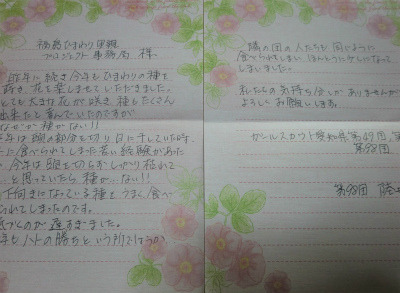 福島ひまわり里親
プロジェクト事務局 様
昨年に続き今年もひまわりの種を
花を楽しませていただきました。
とても大きな花が咲き、種もたくさん
出来たと喜んでいたのですが
種がない!!
年は頭の部分を切り日に干していた時、
に食べられてしまった苦い経験があった
今年は頭を切らずしっかり枯れて
と思っていたら、種が…ない!!
下向きになっている種を、うまく食べ
られてしまったのです。
づくのが遅すぎました。
年もハトの勝ちという所でしょうか
隣の団の人たちも同じように
食べられてしまい ほんとうに少しなって
しまいました。
私たちの気持ち少しかありませんが
よろしくお願いします。
ガールスカウト愛知県第49団
第98団
第98団